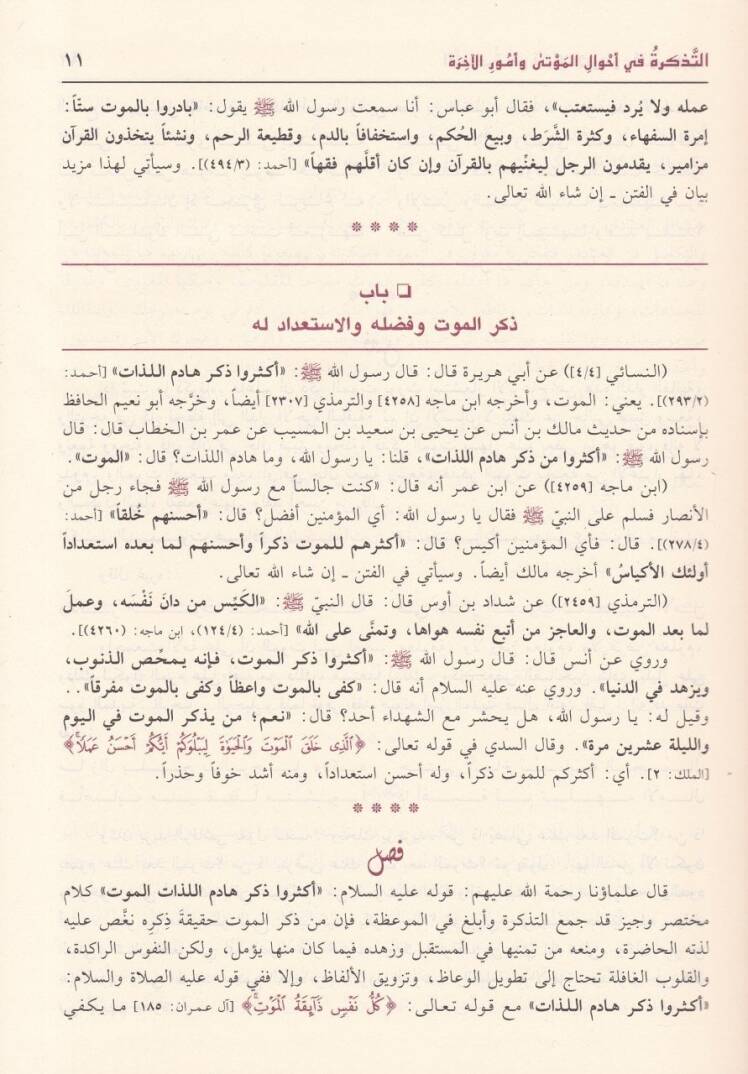 التَّذكرةُ في أحْوالِ المَوْتىٰ وأمُورِ الآخِرَة ١١
عمله ولا يُرد فيستعتب»، فقال أبو عباس: أنا سمعت رسول الله ﷺ يقول: «بادروا بالموت ستّاً:
إمرة السفهاء، وكثرة الشَّرَط، وبيع الحُكم، واستخفافاً بالدم، وقطيعة الرحم، ونشئاً يتخذون القرآن
مزامير، يقدمون الرجل ليغنّيهم بالقرآن وإن كان أقلَّهم فقهاً» [أحمد: (٤٩٤/٣)]. وسيأتي لهذا مزيد
بيان في الفتن ـ إن شاء الله تعالى.
****
❏ باب
ذكر الموت وفضله والاستعداد له
(النسائي [٤/٤]) عن أبي هريرة قال: قال رسول الله ﷺ: «أكثروا ذكر هادم اللذات» [أحمد:
(٢٩٣/٢)]. يعني: الموت، وأخرجه ابن ماجه [٤٢٥٨] والترمذي [٢٣٠٧] أيضاً، وخرَّجه أبو نعيم الحافظ
بإسناده من حديث مالك بن أنس عن يحيى بن سعيد بن المسيب عن عمر بن الخطاب قال: قال
رسول الله ﷺ: «أكثروا من ذكر هادم اللذات»، قلنا: يا رسول الله، وما هادم اللذات؟ قال: «الموت».
(ابن ماجه [٤٢٥٩]) عن ابن عمر أنه قال: «كنت جالساً مع رسول الله ﷺ فجاء رجل من
الأنصار فسلم على النبيّ ﷺ فقال يا رسول الله: أي المؤمنين أفضل؟ قال: «أحسنهم خُلقاً» [أحمد:
(٢٧٨/٤)]. قال: فأي المؤمنين أكيس؟ قال: «أكثرهم للموت ذكراً وأحسنهم لما بعده استعداداً
أولئك الأكياسُ» أخرجه مالك أيضاً. وسيأتي في الفتن ـ إن شاء الله تعالى.
(الترمذي [٢٤٥٩]) عن شداد بن أوس قال: قال النبيّ ﷺ: «الكَيِّس من دانَ نَفْسَه، وعملَ
لما بعد الموت، والعاجز من أتبع نفسه هواها، وتمنَّى على الله» [أحمد: (١٢٤/٤)، ابن ماجه: (٤٢٦٠)].
وروي عن أنس قال: قال رسول الله ﷺ: «أكثروا ذكر الموت، فإنه يمحِّص الذنوب،
ويزهد في الدنيا». وروي عنه عليه السلام أنه قال: «كفى بالموت واعظاً وكفى بالموت مفرقاً»..
وقيل له: يا رسول الله، هل يحشر مع الشهداء أحد؟ قال: «نعم؛ من يذكر الموت في اليوم
والليلة عشرين مرة». وقال السدي في قوله تعالى: ﴿ٱلَّذِى خَلَقَ ٱلْمَوْتَ وَٱلْحَيَوٰةَ لِيَبْلُوَكُمْ أَيُّكُمْ أَحْسَنُ عَمَلًا﴾
[الملك: ٢]. أي: أكثركم للموت ذكراً، وله أحسن استعداداً، ومنه أشد خوفاً وحذراً.
****
فصل
قال علماؤنا رحمة الله عليهم: قوله عليه السلام: «أكثروا ذكر هادم اللذات الموت» كلام
مختصر وجيز قد جمع التذكرة وأبلغ في الموعظة، فإن من ذكر الموت حقيقةَ ذِكرِه نغَّص عليه
لذته الحاضرة، ومنعه من تمنيها في المستقبل وزهده فيما كان منها يؤمل، ولكن النفوس الراكدة،
والقلوب الغافلة تحتاج إلى تطويل الوعاظ، وتزويق الألفاظ، وإلا ففي قوله عليه الصلاة والسلام:
«أكثروا ذكر هادم اللذات» مع قوله تعالى: ﴿كُلُّ نَفْسٍ ذَآئِقَةُ ٱلْمَوْتِ﴾ [آل عمران: ١٨٥] ما يكفي